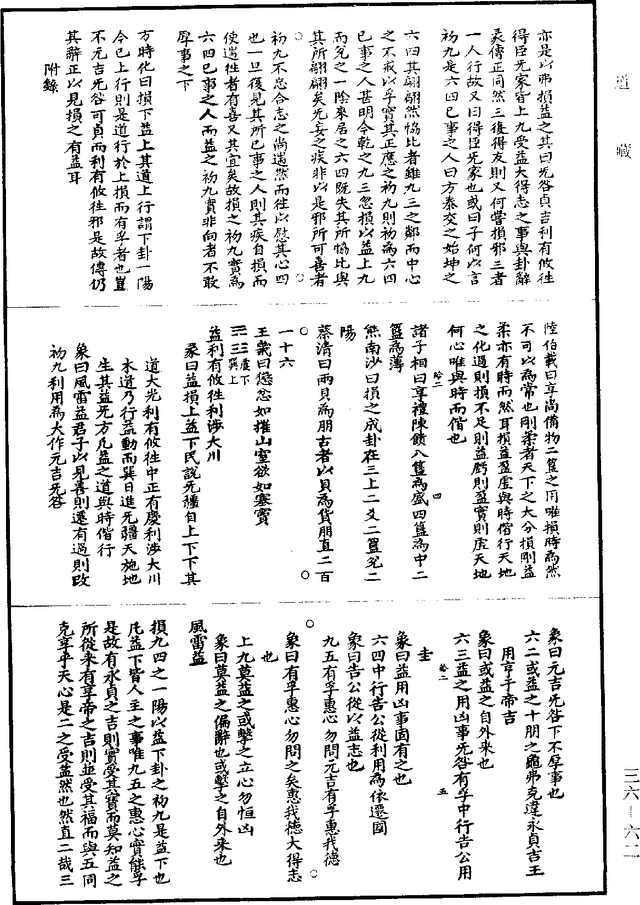 道藏
亦是以弗損益之其曰无咎貞吉利有攸往
得臣无家皆上九受益大得志之事與卦辭
彖傳正同然三復得友則又何嘗損邪三者
一人行故又曰得臣无家也或曰子何以言
初九是六四已事之人曰方泰交之始坤之
六四其翩翩然愶比者雖九三之鄰而中心
之不戒以孚實其正應之初九則初為六四
已事之人甚明今乾之九三忽損以益上九
而兌之一陰來居之六四既失其所愶比與
其所翩翩矣无妄之疾非以是邪所可喜者
初九不忘合志之尚遄然而往以慰其心四
也一旦復見其所已事之人則其疾自損而
使遄往者有喜又其宜矣故損之初九實為
六四已事之人而益之初九實非向者不敢
厚事之下
方時化曰損下益上其道上行謂下卦一陽
今已上行則是道行於上損而有孚者也豈
不元吉无咎可貞而利有攸往邪是故傳仍
其辭正以見損之有益耳
附錄
陸伯載曰享尚備物二簋之用唯損時為然
不可以為常也剛柔者天下之大分損剛益
柔亦有時而然耳損益盈虛與時偕行天地
之化過則損不足則益虧則盈實則虛天地
何心唯與時而偕也
諸子相曰享禮陳饋八簋為盛四簋為中二
簋為薄
熊南沙曰損之成卦在三上二爻二簋兌二
陽
蔡清曰兩貝為朋古者以貝為貨朋直二百
一十六
王畿曰懲忿如摧山窒欲如塞竇
䷩震下巽上
益利有攸往利涉大川
彖曰益損上益下民說无疆自上下下其
道大光利有攸往中正有慶利涉大川
木道乃行益動而巽日進无疆天施地
生其益无方凡益之道與時偕行
象曰風雷益君子以見善則遷有過則改
初九利用為大作元吉无咎
象曰元吉无咎下不厚事也
六二或益之十朋之龜弗克違永貞吉王
用亨于帝吉
象曰或益之自外來也
六三益之用凶事无咎有孚中行告公用
圭
象曰益用凶事固有之也
六四中行告公從利用為依遷國
象曰告公從以益志也
九五有孚惠心勿問元吉有孚惠我德
象曰有孚惠心勿問之矣惠我德大得志
也
上九莫益之或擊之立心勿恒凶
象曰莫益之偏辭也或擊之自外來也
風雷益
損九四之一陽以益下卦之初九是益下也
凡益下皆人主之事唯九五之惠心實能孚
是故有永貞之吉則實受其實而莫知益之
所從來有享帝之吉則並受其福而與五同
克享乎天心是二之受益然也然直二哉三
三六—六二